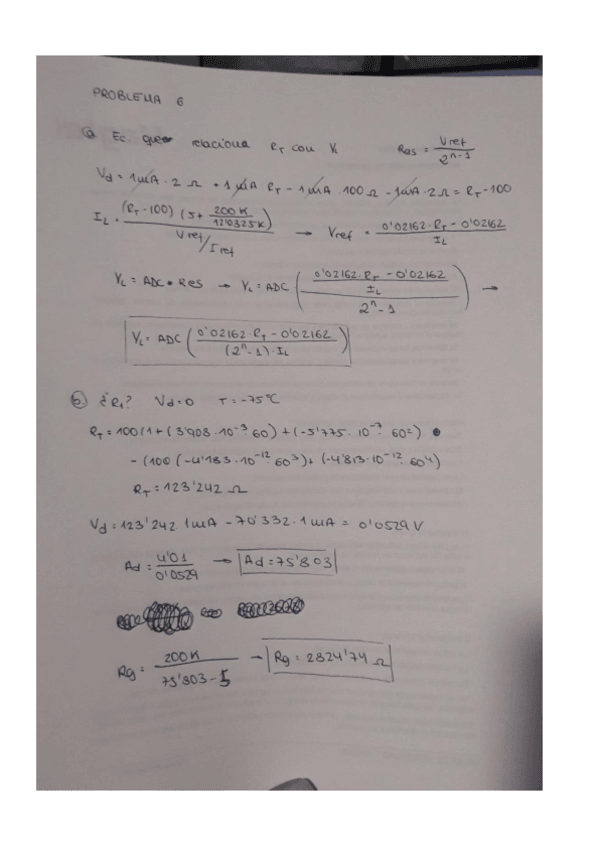 PROBLEMA 6
a) Ec. que relaciona RT con VL Res = Vref / 2^n-1
Vd = 1mA · 2Ω + 1mA RT - 1mA · 100Ω - 1mA · 2Ω = RT - 100
IL = (RT - 100) (5 + 200K / 12'0325K) / Vref / Iref → Vref = 0'02162 · RT - 0'02162 / IL
VL = ADC · Res → VL = ADC ( 0'02162 · RT - 0'02162 / IL / 2^n - 1 ) →
VL = ADC ( 0'02162 · RT - 0'02162 / (2^n - 1) · IL )
b) ¿R1? Vd = 0 T = -75°C
RT = 100 (1 + (3'908 · 10^-3 · 60) + (-5'775 · 10^-7 · 60^2)
- (100 (-4'183 · 10^-12 · 60^3) + (-4'813 · 10^-12 · 60^4)
RT = 123'242 Ω
Vd = 123'242 · 1mA - 70'332 · 1mA = 0'0529 V
Ad = 4'01 / 0'0529 → Ad = 75'803
Rg = 200K / 75'803 - 5 → Rg = 2824'74 Ω